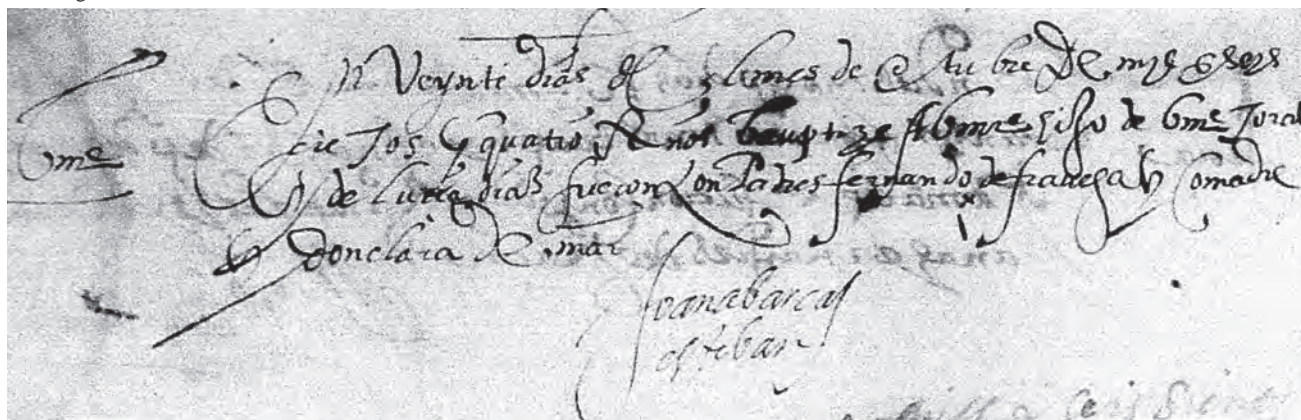 Gme
En Veynte dias del mes de Otubre De mys y seys
cientos y quatro años bauptize a Gme hijo de Gme Toral
y de luçia diaz fueron Conpadres fernando de y Comadre
y doña clara de
Joan abarca
esteban